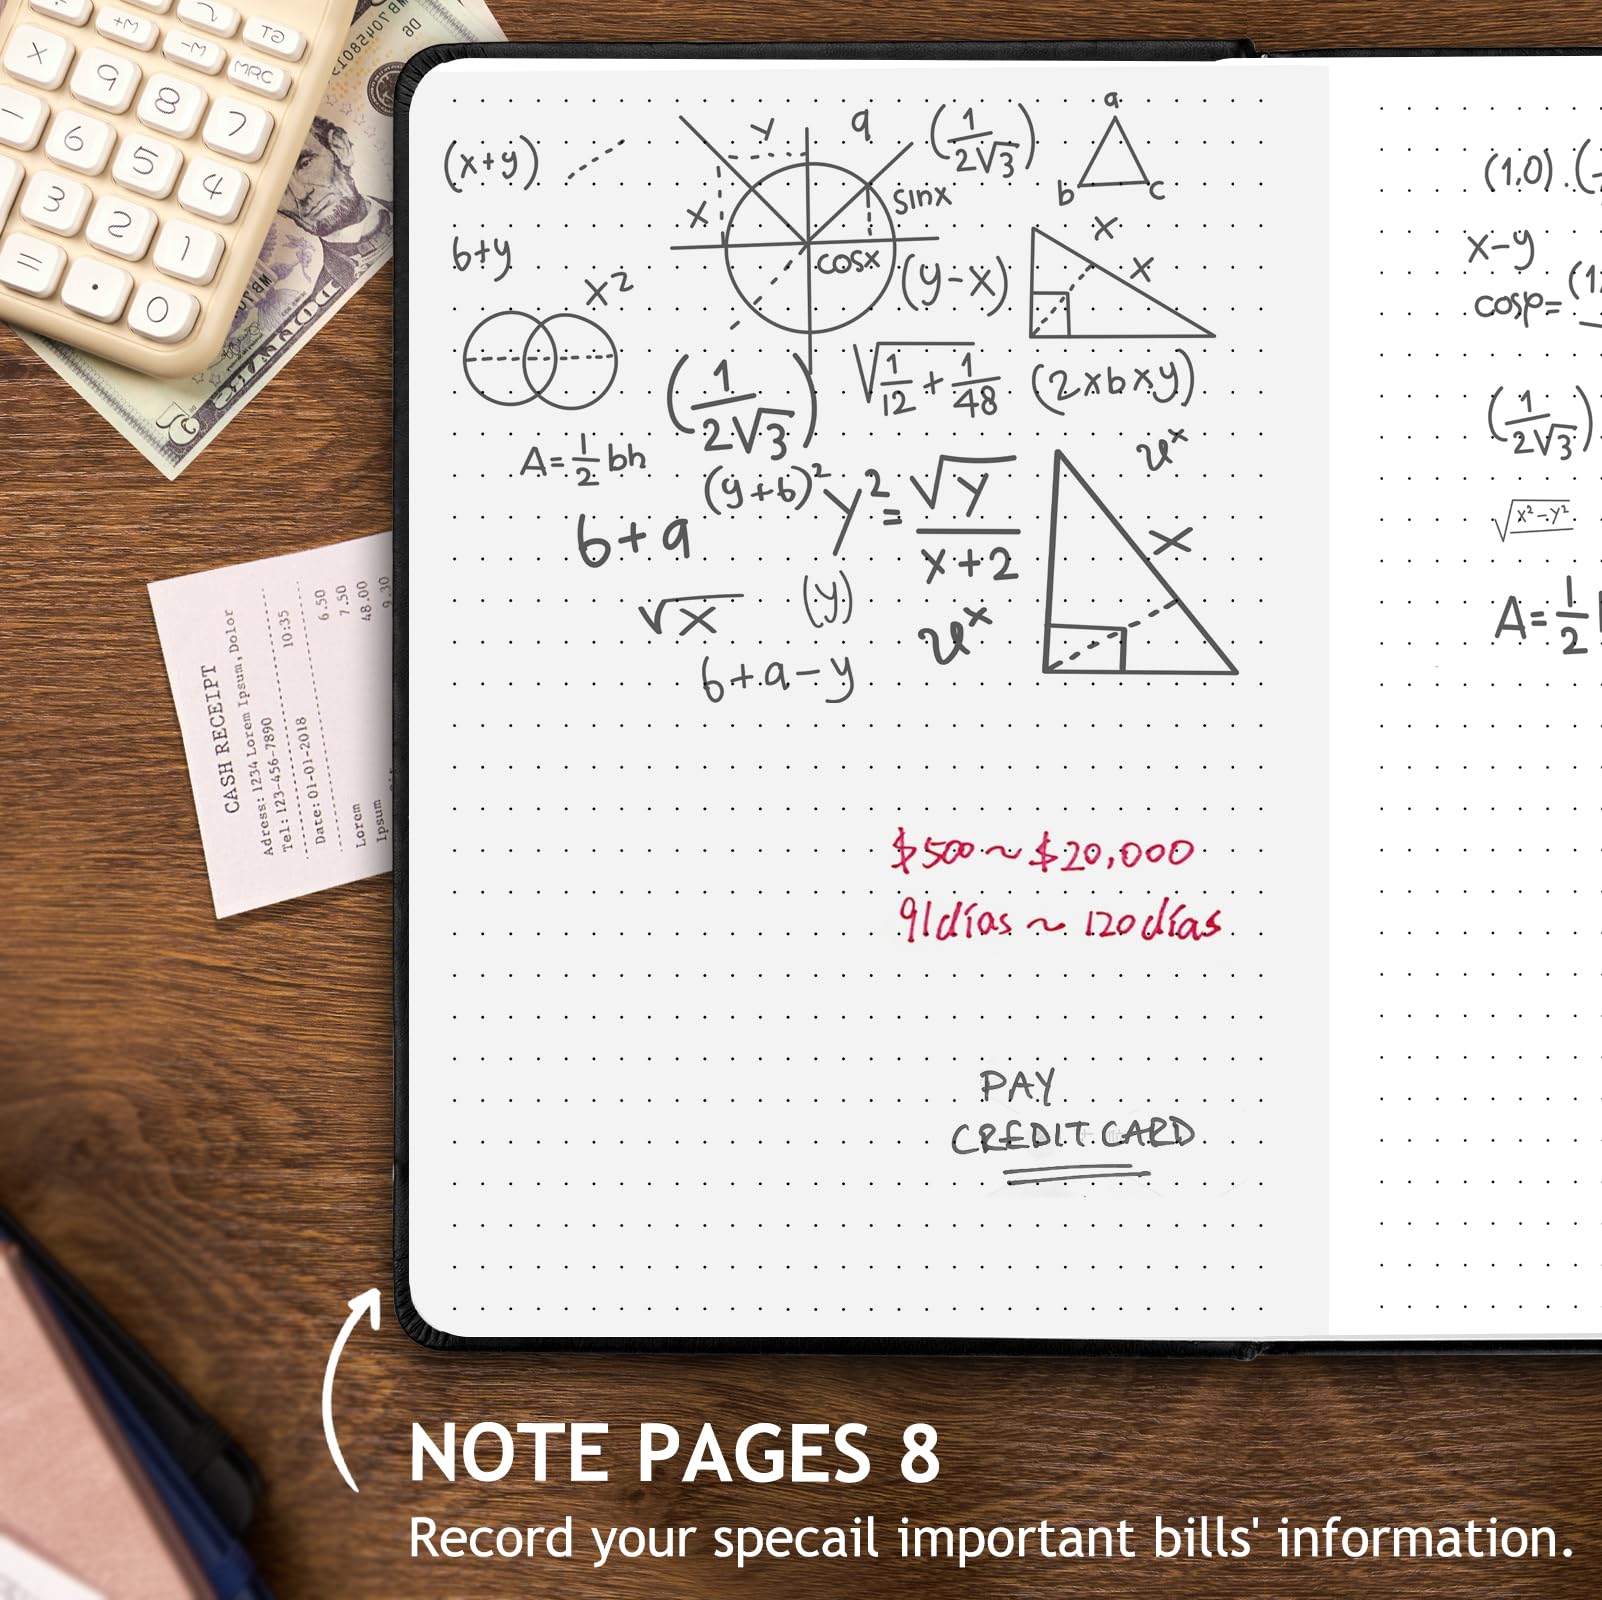 ÷
+M
2
TG
×
9
-M
MRC
-
6
8
7
3
5
4
=
2
1
.
0
CASH RECEIPT
Adress: 1234 Lorem Ipsum, Dolor
Tel: 123-456-7890
Date: 01-01-2018 10:35
Lorem 6.50
Ipsum 7.50
48.00
9.30
(x+y)
y
q
(1/2√3)
a
b
c
x
sinx
cosx
6+y
x²
(y-x)
x
x
(1/2√3)
√1/12+1/48
(2xbxy)
A=1/2 bh
(y+6)²
6+a
y²=√y/x+2
x
√x
(y)
6+a-y
$500~$20,000
91días~120días
PAY
CREDIT CARD
(1,0).(
x-y
cosp=
(1/2√3)
√x²-y²
A=1/2
NOTE PAGES 8
Record your specail important bills' information.